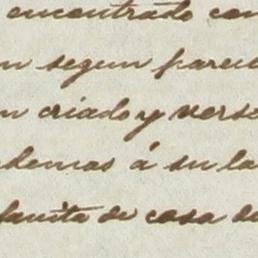 encontrado con
n segun parec
n criado y vers
demas á su la
fanita de casa de